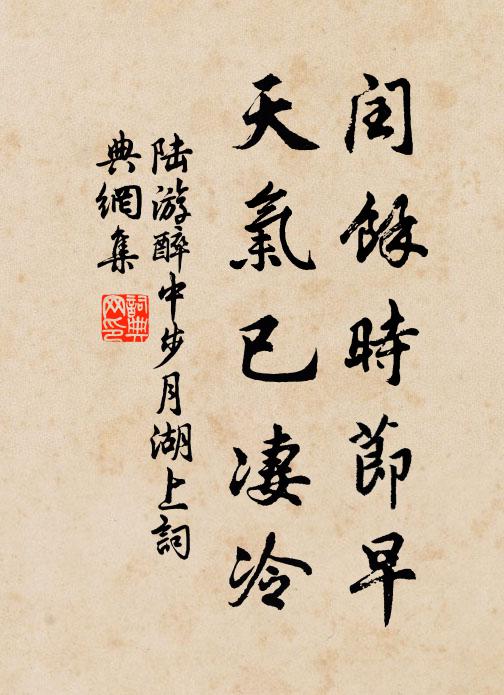 閏餘時節早
天氣已凄冷
陸游醉中步月湖上詞
典網集
詞典網印